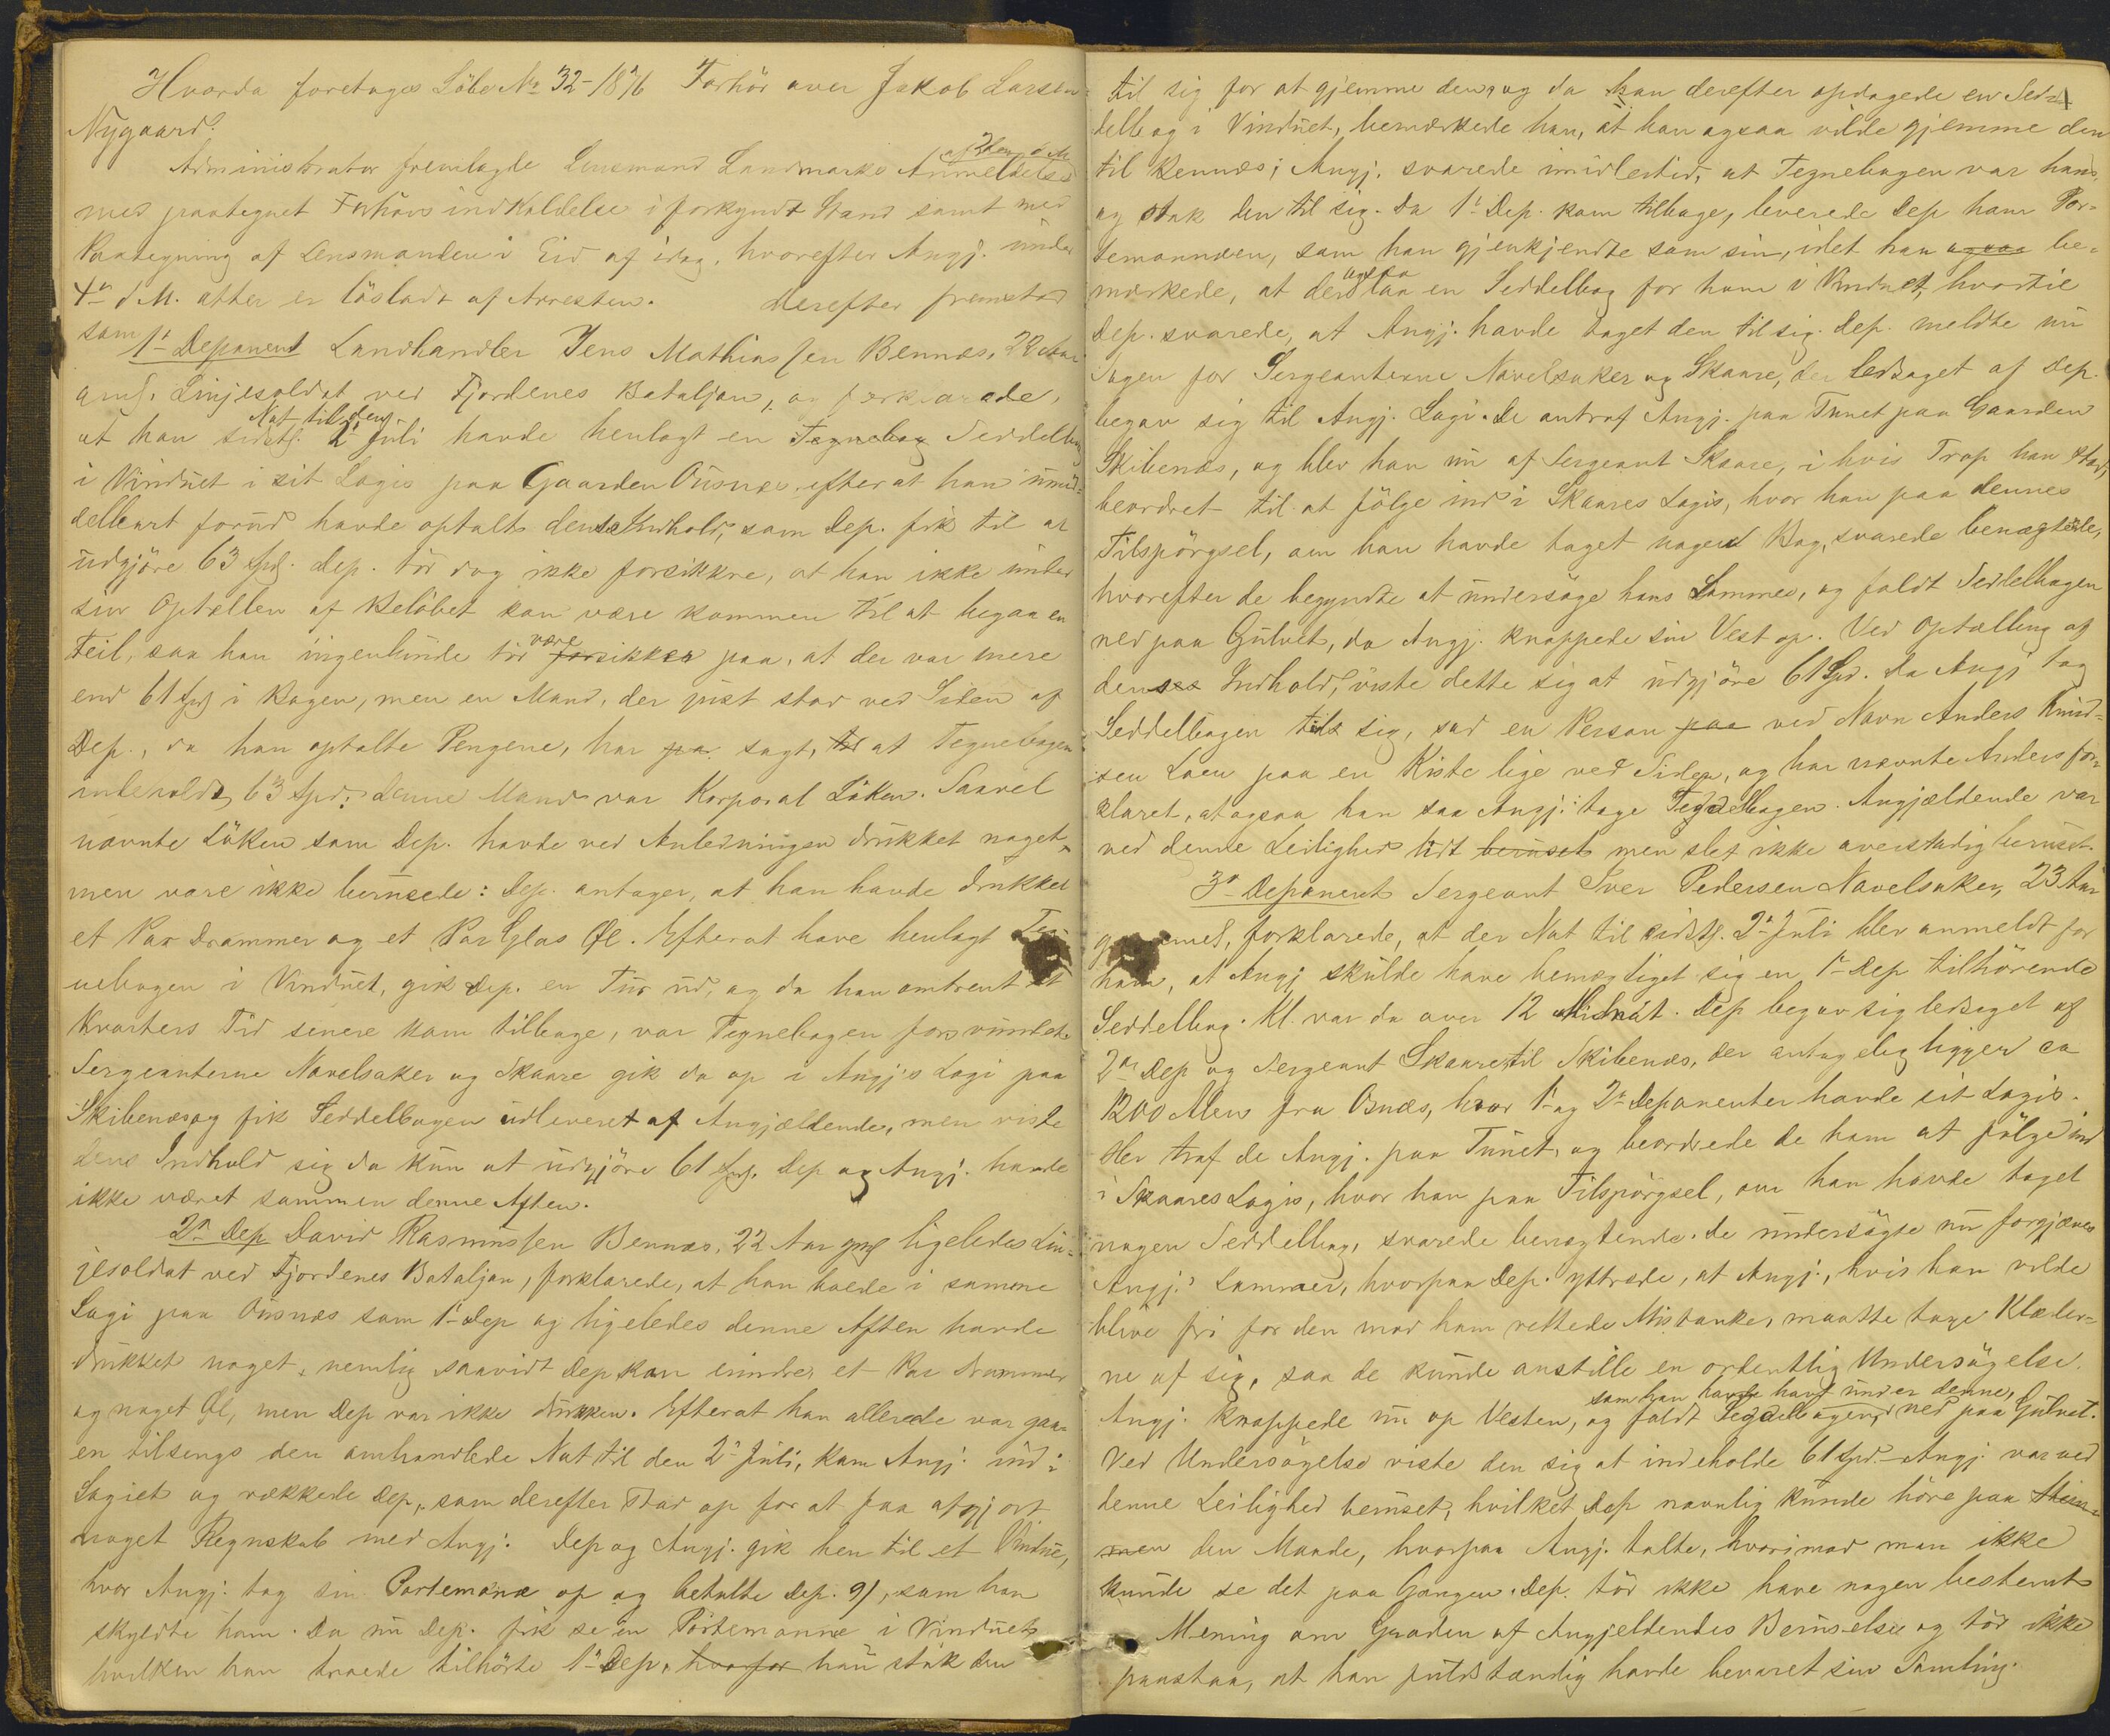 Hvorda foretoges Löbe No 32-1876 Forhör over Jakob Larsen
Nygaard.
af 2den d. M.
Administrator fremlagde Lensmand Landmarks Anmeldelse
med paategnet Forhörsindkaldelse i forkyndt Stand samt med
Paategning af Lensmanden i Eid af idag, hvorefter Angj. under
4de d M. atter er lösladt af Arresten. Derefter fremstod
som 1ste Deponent Landhandler Jens Mathiassen Bennæs, 22 Aar
gml. Linjesoldat ved Fjordenes Bataljon, og forklarede,
Nat til den
at han sidstl. 2den Juli havde henlagt en Tegnebog Seddelbog
i Vinduet i sit Logis paa Gaarden Ousnæs efterat han umid-
delbart forud havde optalt dens Indhold, som Dep. fik til at
udgjöre 63 Spd. Dep. tör dog ikke forsikkre, at han ikke under
sin Optællen af Belöbet kan være kommen til at begaa en
Feil, saa han ingenlunde tör være forsikker paa, at der var mere
end 61 Spd i Bogen, men en Mand, der just stod ved Siden af
Dep., da han optalte Pengene, har paa sagt, til at Tegnebogen
indeholdt 63 Spd; denne Mand var Korporal Löken. Saavel
nævnte Löken som Dep. havde ved Anledningen drukket noget,
men vare ikke berusede: Dep. antager, at han havde drukket
et Par Drammer og et Par Glas Øl. Efterat have henlagt Teg-
nebogen i Vinduet, gik Dep. en Tur ud, og da han omtrent et
Kvarters Tid senere kom tilbage, var Tegnebogen forsvundet.
Sergeanterne Navelsaker og Skaare gik da op i Angj's Logi paa
Skibenæs og fik Seddelbogen udleveret af Angjældende, men viste
dens Indhold sig da kun at udgjöre 61 Spd. Dep og Angj. havde
ikke været sammen denne Aften.
2den Dep David Rasmussen Bennæs, 22 Aar gml ligeledes Lin-
jesoldat ved Fjordenes Bataljon, forklarede, at han boede i samme
Logi paa Ousnæs som 1ste Dep og ligeledes denne Aften havde
drukket noget, nemlig saavidt Dep kan erindre, et Par Drammer
og noget Øl, men Dep var ikke drukken. Efterat han allerede var gaa-
en tilsengs den omhandlede Nat til den 2den Juli, kom Angj. ind i
Logiet og vækkede Dep., som derefter stod op for at faa afgjort
noget Regnskab med Angj. Dep og Angj. gik hen til et Vindue,
hvor Angj. tog sin Portemonæ op og betalte Dep. 9 f, som han
skyldte ham. Da nu Dep. fik se en Portemonnæ i Vinduet,
hvilken han troede tilhörte 1ste Dep, hvorfor han stak den
til sig for at gjemme den, og da han derefter opdagede en Sed-
delbog i Vinduet, bemærkede han, at han ogsaa vilde gjemme den
til Bennæs; Angj. svarede imidlertid, at Tegnebogen var hans,
og stak den til sig. Da 1ste Dep. kom tilbage, leverede Dep ham Por-
temonnæen, som han gjenkjendte som sin, idet han ogsaa be-
ogsaa
mærkede, at der laa en Seddelbog for ham i Vinduet, hvortil
Dep. svarede, at Angj. havde taget den til sig. Dep. meldte nu
Sagen for Sergeanterne Navelsaker og Skaare, der ledsaget af Dep.
begav sig til Angj. Logi. De antraf Angj. paa Tunet paa Gaarden
Skibenæs, og blev han nu af Sergeant Skaare, i hvis Trop han stod,
beordret til at fölge ind i Skaares Logis, hvor han paa dennes
Tilspörgsel, om han havde taget nogen Bog, svarede benægtende,
hvorefter de begyndte at undersöge hans Lommer, og faldt Seddelbogen
ned paa Gulvet, da Angj. knappede sin Vest op. Ved Optælling af
dens Indhold, viste dette sig at udgjöre 61 Spd. Da Angj tog
Seddelbogen til sig, sad en Person paa ved Navn Anders Knud-
sen Loen paa en Kiste lige ved Siden, og har nævnte Anders for-
klaret, at ogsaa han saa Angj. tage Seddelbogen. Angjældende var
ved denne Leilighed lidt beruset men slet ikke overstadig beruset.
3die Deponent Sergeant Iver Pedersen Navelsaker, 23 Aar
gammel, forklarede, at der Nat til sidstl. 2den Juli blev anmeldt for
ham, at Angj skulde have bemægtiget sig en 1ste Dep tilhörende
Seddelbog. Kl. var da over 12 Midnat. Dep begav sig ledsaget af
2den Dep og Sergeant Skaare til Skibenæs, der antagelig ligger ca
1200 Alen fra Osnæs, hvor 1ste og 2den Deponenter havde sit Logis.
Her traf de Angj. paa Tunet, og beordrede de ham at fölge ind
i Skaares Logis, hvor han paa Tilspörgsel, om han havde taget
nogen Seddelbog, svarede benægtende. De undersögte nu forgjæves
Angj.s Lommer, hvorpaa Dep. yttrede, at Angj., hvis han vilde
blive fri for den mod ham rettede Mistanke, maatte tage Klæder-
ne af sig, saa de kunde anstille en ordentlig Undersögelse.
som han havde havt under denne,
Angj. knappede nu op Vesten, og faldt Seddelbogen, ned paa Gulvet.
Ved Undersögelse viste den sig at indeholde 61 Spd. Angj. var ved
denne Leilighed beruset, hvilket Dep navnlig kunde höre paa Stem-
men den Maade, hvorpaa Angj. talte, hvorimod man ikke
kunde se det paa Gangen. Dep. tör ikke have nogen bestemt
Mening om Graden af Angjeldendes Beruselse og tör ikke
paastaa, at han fuldstændig havde bevaret sin Samling.